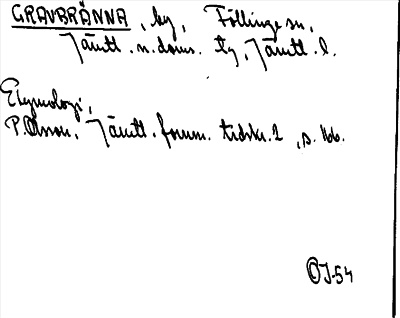 GRAVBRÄNNA, by, Föllinge sn,
Jämtl. n. doms. tg, Jämtl. l.
Etymologi,
P. Olsson, Jämtl. fornm. tidskr. 2, s. 166.
OJ-54